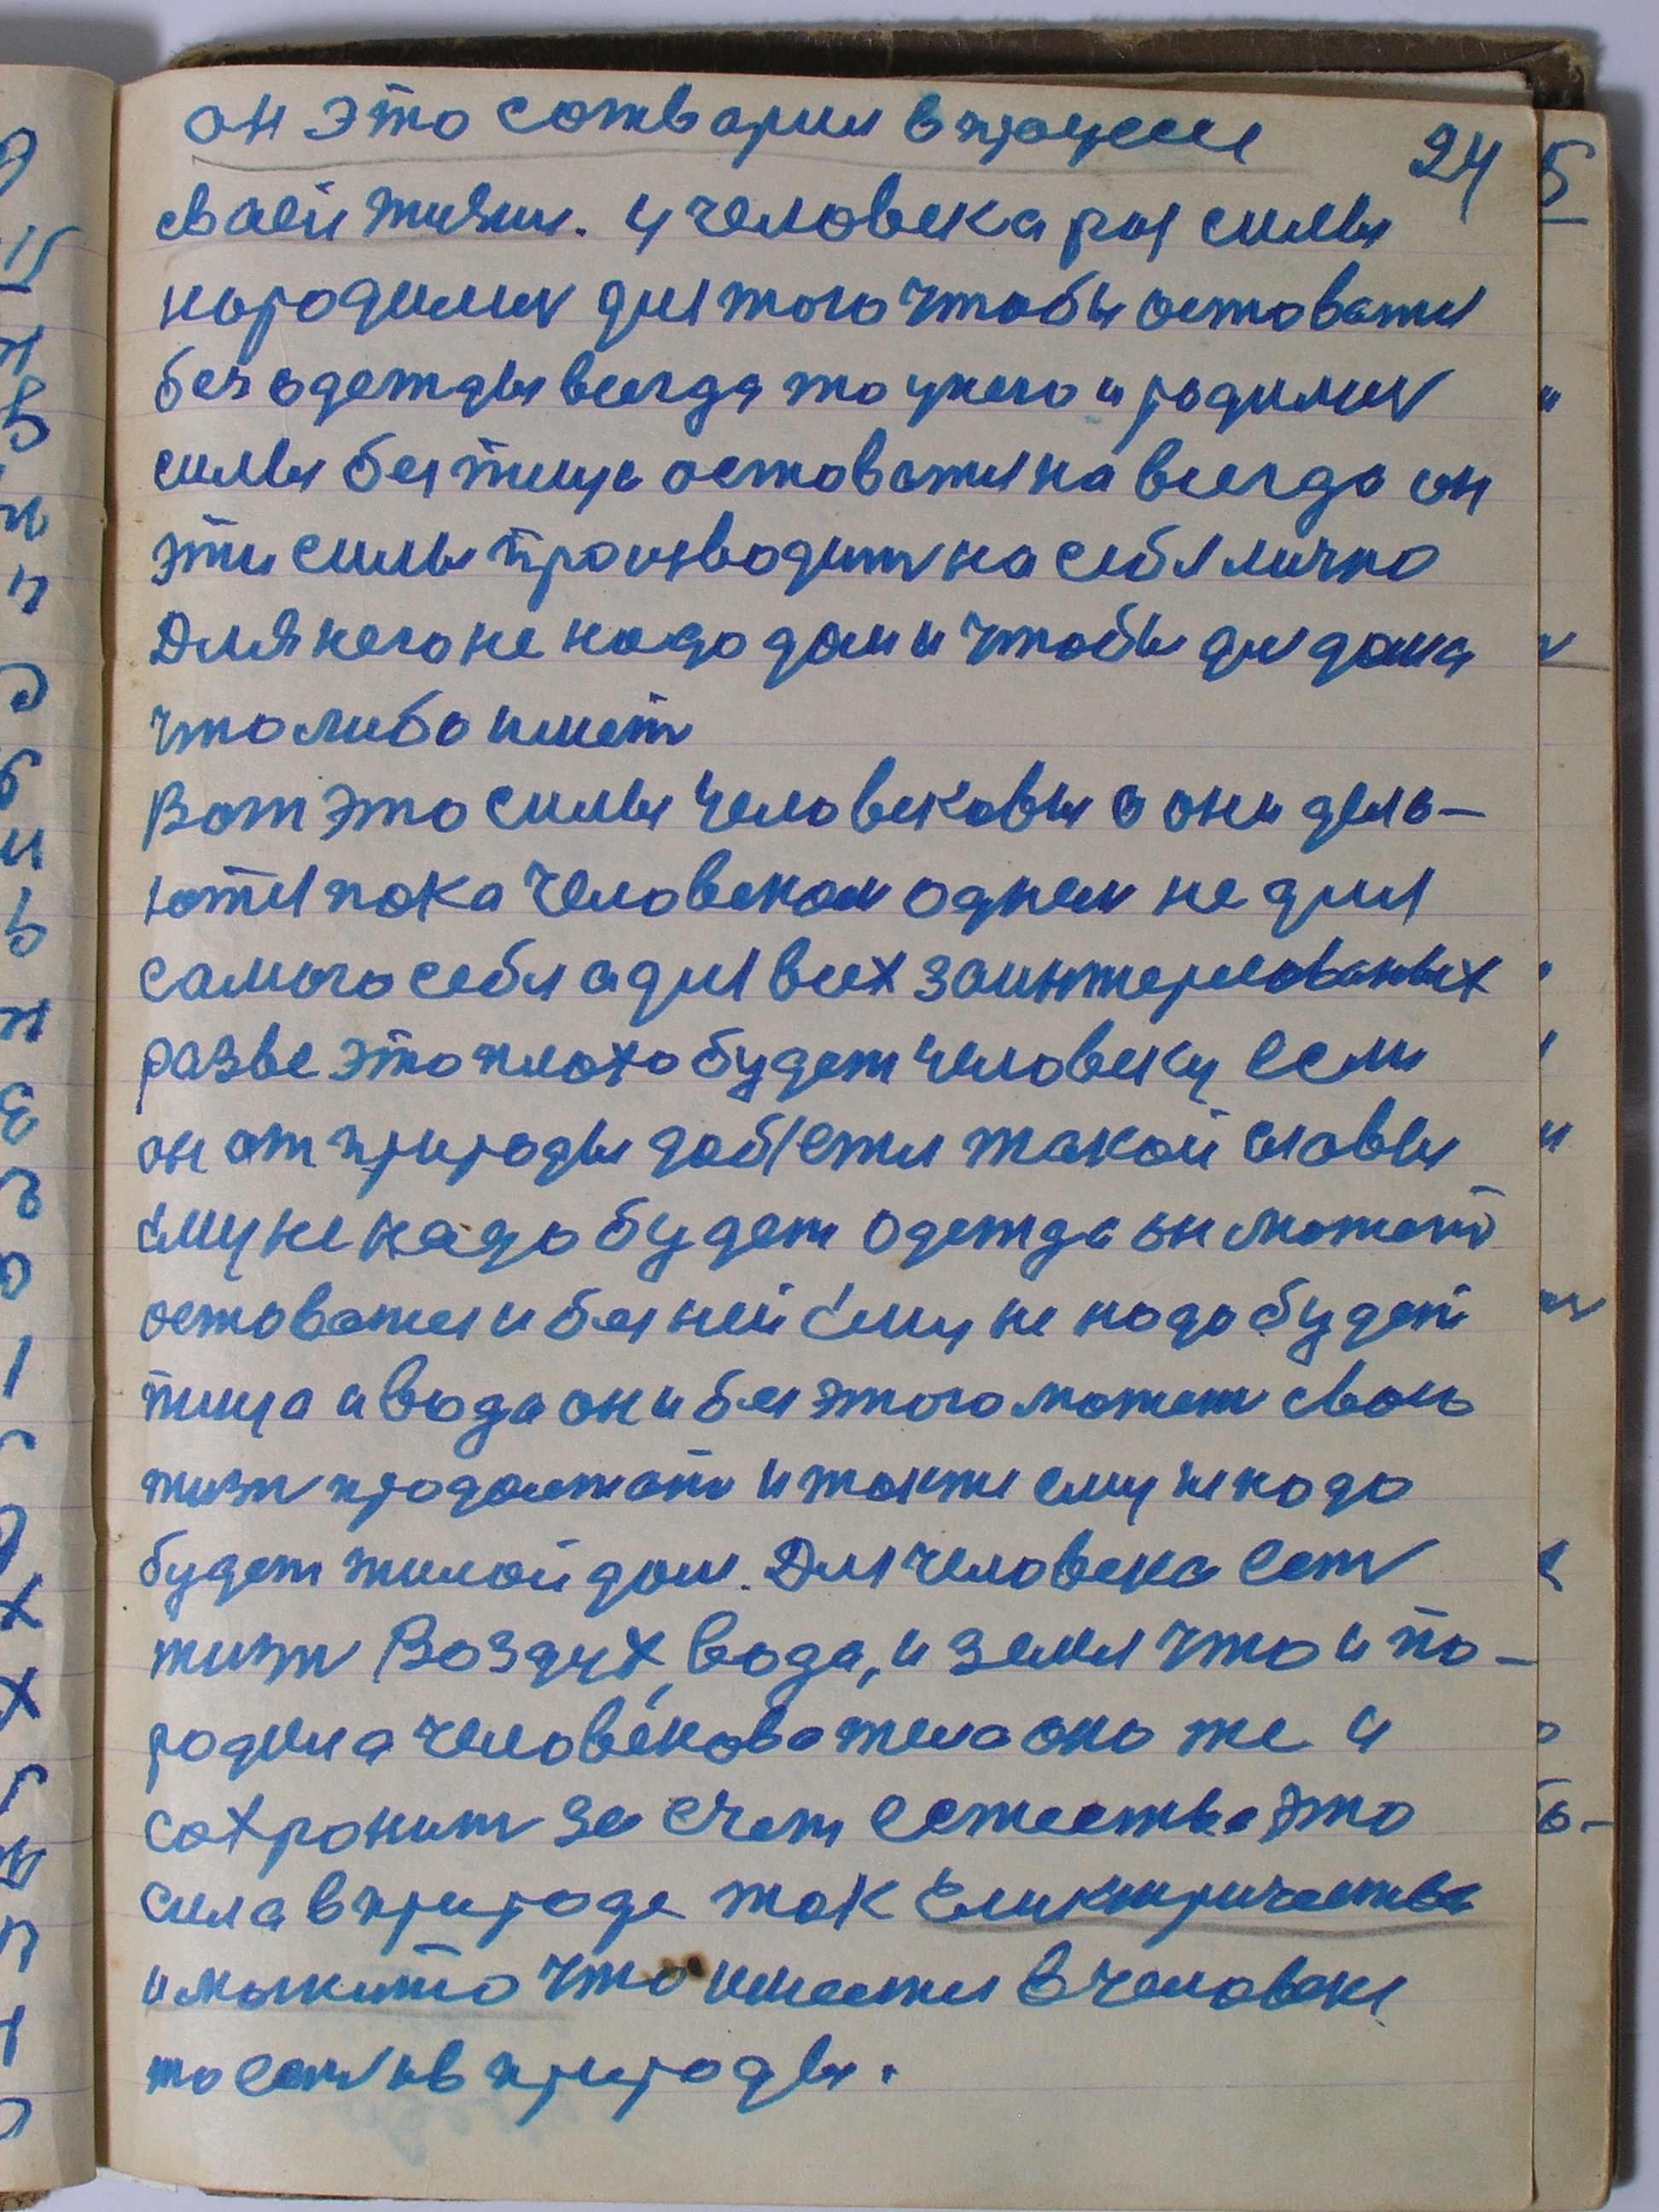 он это сотварил в процесе 24
сваей жизни. у человека раз силы
народились для того чтобы оставатся
без одежды всегда то у него и родились
силы без пищи оставатся на всегда он
эти силы производит на себя лично
Для него не надо дом и чтобы для дома
что либо имет
Вот это силы человековы а они дела-
ются пока человеком однем не для
самого себя а для всех заинтересованых
разве это плохо будет человеку если
он от природы добется такой славы
ему не надо будет одежда он может
остоватся и без ней ему не надо будет
пища и вода он и без этого может свою
жизн продолжат и также ему не надо
будет жилой дом. Для человека ест
жизн Воздух, вода, и земля что и по-
родила человекова тела оно же и
сохронит за счет естества это
сила в природе так еликтричества
и магнито что имеется в человеке
то ест и в природы.